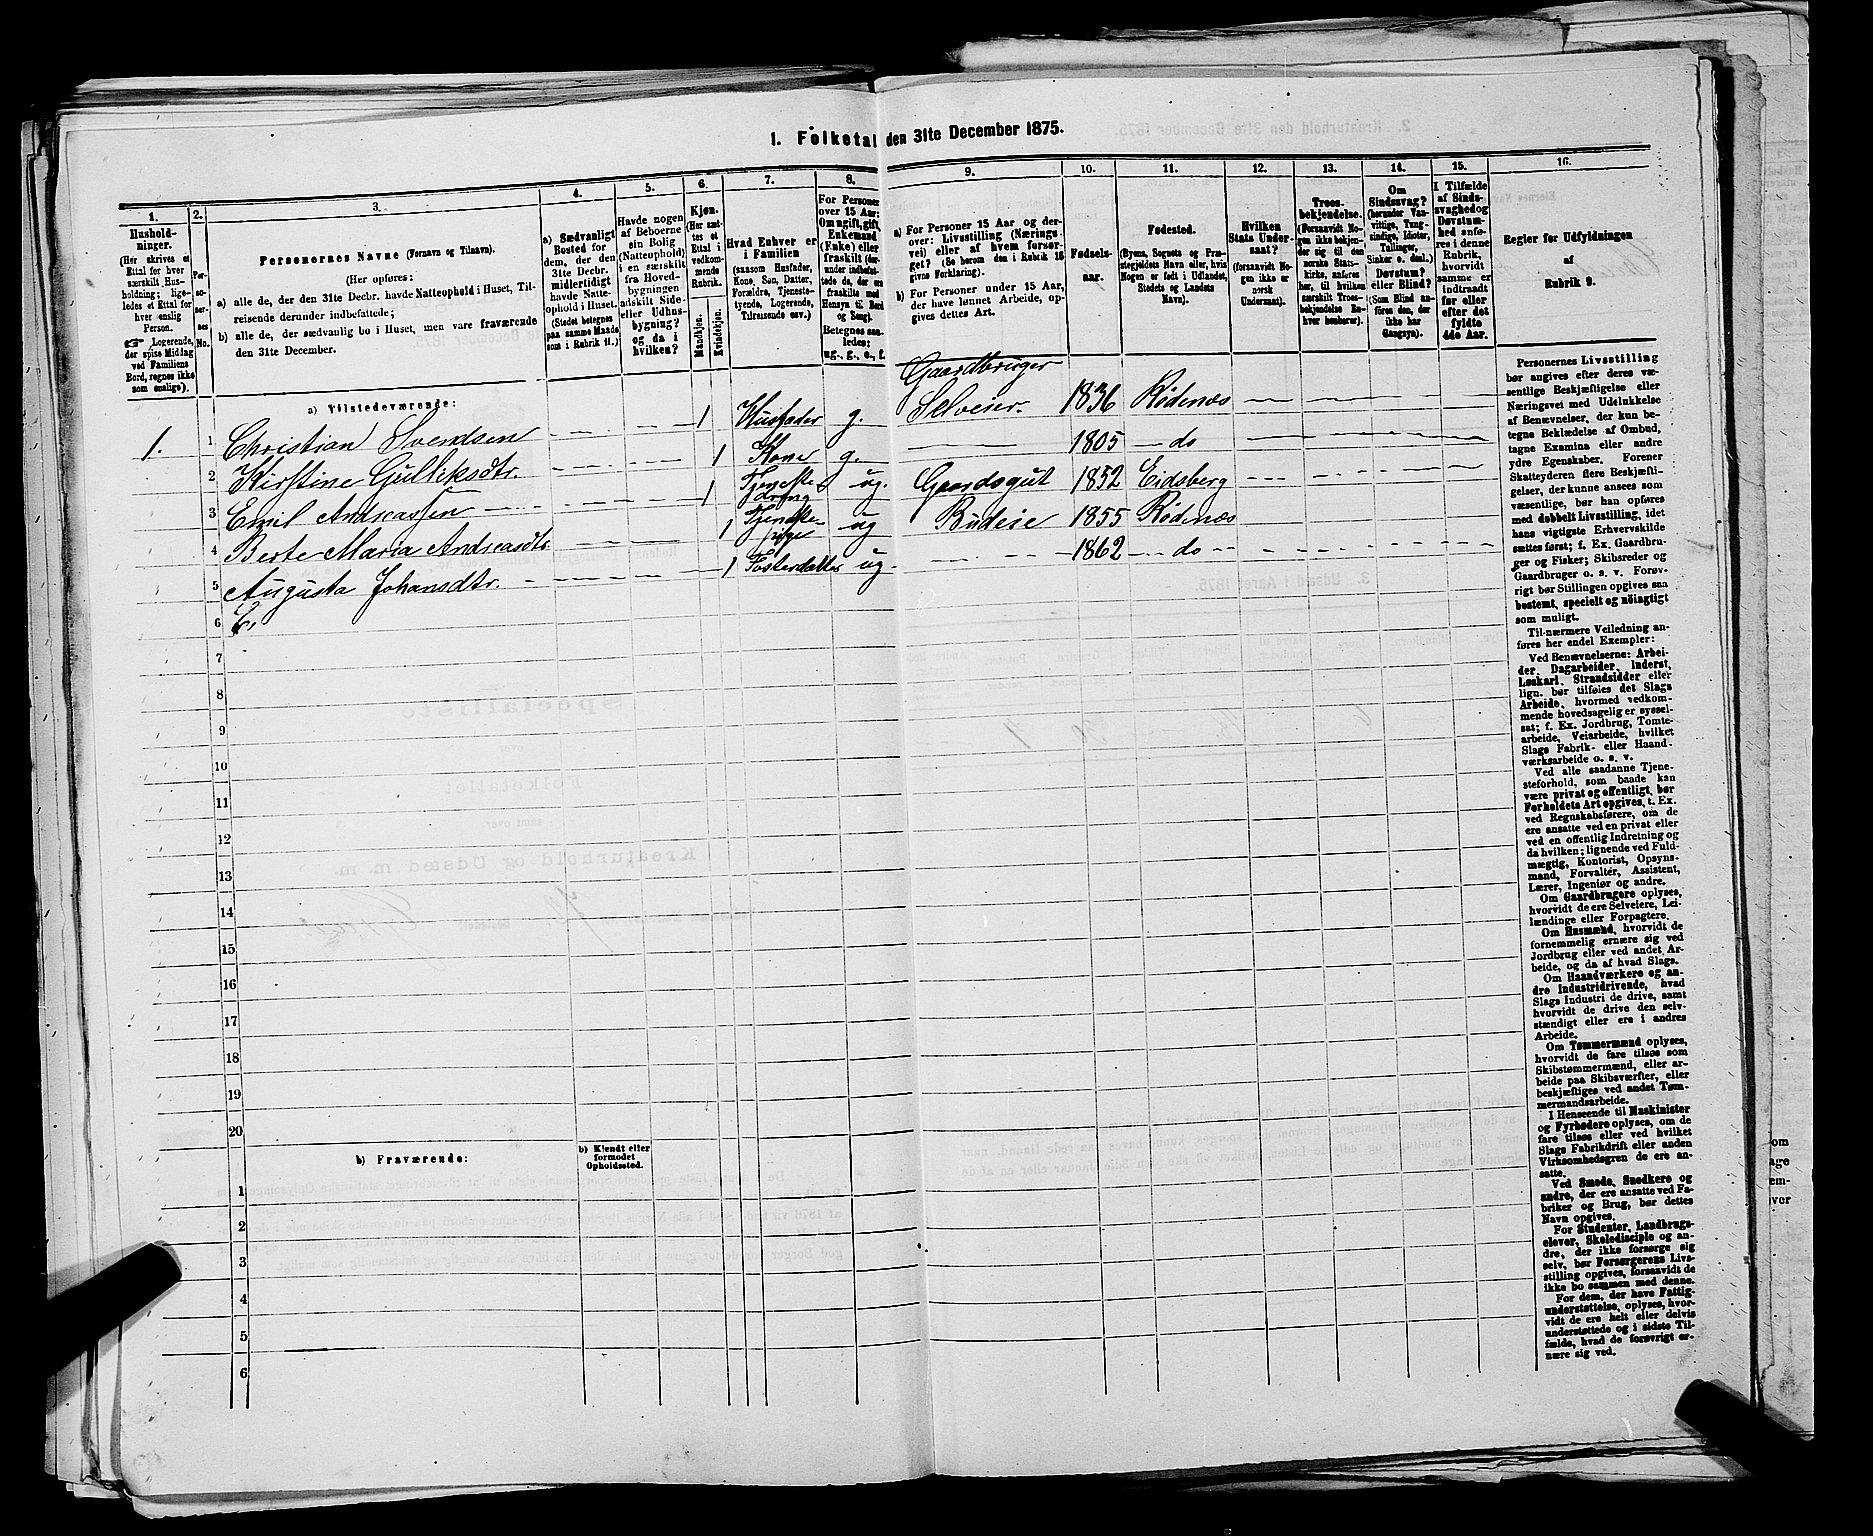 1. Folketal den 31te December 1875.
1.
Hushold-
ninger.
(Her skrives et
Ettal for hver
særskilt Hus-
holdning; lige-
ledes et Ettal for
hver enslig
Person.
☞ Logerende,
der spise Middag
ved Familiens
Bord, regnes ikke
som enslige).
2.
Per-
so-
ner-
nes
No.
3.
Personernes Navne (Fornavn og Tilnavn).
(Her opføres:
a) alle de, der den 31te Decbr. havde Natteophold i Huset, Til-
reisende derunder indbefattede;
b) alle de, der sædvanlig bo i Huset, men vare fraværende
den 31te December.
4.
a) Sædvanligt
Bosted for
dem, der den
31te Decbr.
midlertidigt
havde Natte-
ophold i Huset.
(Stedet betegnes
paa samme Maade
som i Rubrik 11.)
5.
Havde nogen
af Beboerne
sin Bolig
(Natteophold)
i en særskilt
fra Hoved-
bygningen
adskilt Side-
eller Udhus-
bygning?
og da i
hvilken?
6.
Kjøn.
(Her sæt-
tes et
Ettal i
vedkom-
mende
Rubrik.
Mandkjøn.
Kvindekjøn.
7.
Hvad Enhver er
i Familien
(saasom Husfader,
Kone, Søn, Datter,
Forældre, Tjeneste-
tyende, Logerende,
Tilreisende osv.)
8.
For Personer
over 15 Aar:
Om ugift, gift,
Enkemand
(Enke) eller
fraskilt (der-
under indbefat-
tede de, der ere
fraskilte med
Hensyn til Bord
og Seng).
Betegnes saa-
ledes:
ug., g., e., f.
9.
a) For Personer 15 Aar og der-
over: Livsstilling (Nærings-
vei) eller af hvem forsør-
get? (Se herom den i Rubrik 16
givne Forklaring).
b) For Personer under 15 Aar,
der have lønnet Arbeide, op-
gives dettes Art.
10.
Fødsels-
aar.
11.
Fødested.
(Byens, Sognets og Præ-
stegjeldets Navn eller, hvis
Nogen er født i Udlandet,
Stedets og Landets
Navn).
12.
Hvilken
Stats Under-
saat?
(forsaavidt No-
gen ikke er
norsk
Undersaat).
13.
Troes-
bekjendelse.
(Forsaavidt No-
gen ikke bekjen-
der sig til den
norske Stats-
kirke, anføres
her, til hvilken
særskilt Troes-
bekjendelse En-
hver henhører).
14.
Om
Sindssvag?
(herunder Van-
vittige, Tung-
sindige, Idioter,
Tullinger,
Sinker o. desl.).
Døvstum?
eller Blind?
(Som Blind an-
føres den, der
ikke har
Gangsyn).
15.
I Tilfælde
af Sinds-
svaghed og
Døvstum-
hed anfø-
res i denne
Rubrik,
hvorvidt
samme er
indtraadt
før eller
efter det
fyldte
4de Aar.
16.
Regler for Udfyldningen
af
Rubrik 9.
a) Tilstedeværende:
1. 1 Christian Svendsen 1 Husfader g. Gaardbruger Selveier. 1836 Rødenæs
2 Kirstine Gulliksdtr. 1 Kone g. 1805 do
3 Emil Andreassen 1 Tjeneste dreng ug. Gaardsgut 1852 Eidsberg
4 Berte Maria Andreasdtr. 1 Tjeneste pige ug Budeie 1855 Rødenæs
5 Augusta Johansdtr. 1 Fosterdatter ug. 1862 do
6
7
8
9
10
11
12
13
14
15
16
17
18
19
20
b) Fraværende:
b) Kjendt eller
formodet
Opholdssted.
1
2
3
4
5
6
Personernes Livsstilling
bør angives efter deres væ-
sentlige Beskjæftigelse eller
Næringsvei med Udelukkelse
af Benævnelser, der kun be-
tegne Beklædelse af Ombud,
tagne Examina eller andre
ydre Egenskaber. Forener
Skatteyderen flere Beskjæfti-
gelser, der kunne ansees som
væsentlige, bør han opføres
med dobbelt Livsstilling, idet
hans vigtigste Erhvervskilde
sættes først; f. Ex. Gaardbru-
ger og Fisker; Skibsreder og
Gaardbruger o. s. v. Forøv-
rigt bør Stillingen opgives saa
bestemt, specielt og nöiagtigt
som muligt.
Til nærmere Veiledning an-
føres her endel Exempler:
Ved Benævnelserne: Arbei-
der, Dagarbeider, Inderst,
Løskarl, Strandsidder eller
lign. bør tilføies det Slags
Arbeide, hvormed vedkom-
mende hovedsagelig er syssel-
sat; f. Ex. Jordbrug, Tomte-
arbeide, Veiarbeide, hvilket
Slags Fabrik- eller Haand-
værksarbeide o. s. v.
Ved alle saadanne Tjene-
steforhold, som baade kan
være privat og offentligt, bør
Forholdets Art opgives, t. Ex.
ved Regnskabsførere, om de
ere ansatte ved en privat eller
ved en offentlig Indretning og
da hvilken; lignende ved Fuld-
mægtig, Kontorist, Opsyns-
mand, Forvalter, Assistent,
Lærer, Ingeniør og andre.
Om Gaardbrugere oplyses,
hvorvidt de ere Selveiere, Lei-
lændinge eller Forpagtere.
Om Husmænd, hvorvidt de
fornemmelig ernære sig ved
Jordbrug eller ved andet Ar-
beide, og da af hvad Slags.
Om Haandværkere og an-
dre Industridrivende, hvad
Slags Industri de drive, samt
hvorvidt de drive den selv-
stændigt eller ere i andres
Arbeide.
Om Tømmermænd oplyses,
hvorvidt de fare tilsøs som
Skibstømmermænd, eller ar-
beide paa Skibsværfter, eller
beskjæftiges ved andet Tøm-
mermandsarbeide.
I Henseende til Maskinister
og Fyrbødere oplyses, om de
fare tilsøs eller ved hvilket
Slags Fabrikdrift eller anden
Virksomhedsgren de ere an-
satte.
Ved Smede, Snedkere og
andre, der ere ansatte ved Fa-
briker og Brug, bør dettes
Navn opgives.
For Studenter, Landbrugs-
elever, Skoledisciple og an-
dre, der ikke forsørge sig
selv, bør Forsørgerens Livs-
stilling opgives, forsaavidt de
ikke bo sammen med denne.
For dem, der have Fattig-
understøttelse, oplyses, hvor-
vidt de ere helt eller delvis
understøttede og i sidste Til-
fælde, hvad de forøvrigt er-
nære sig ved.